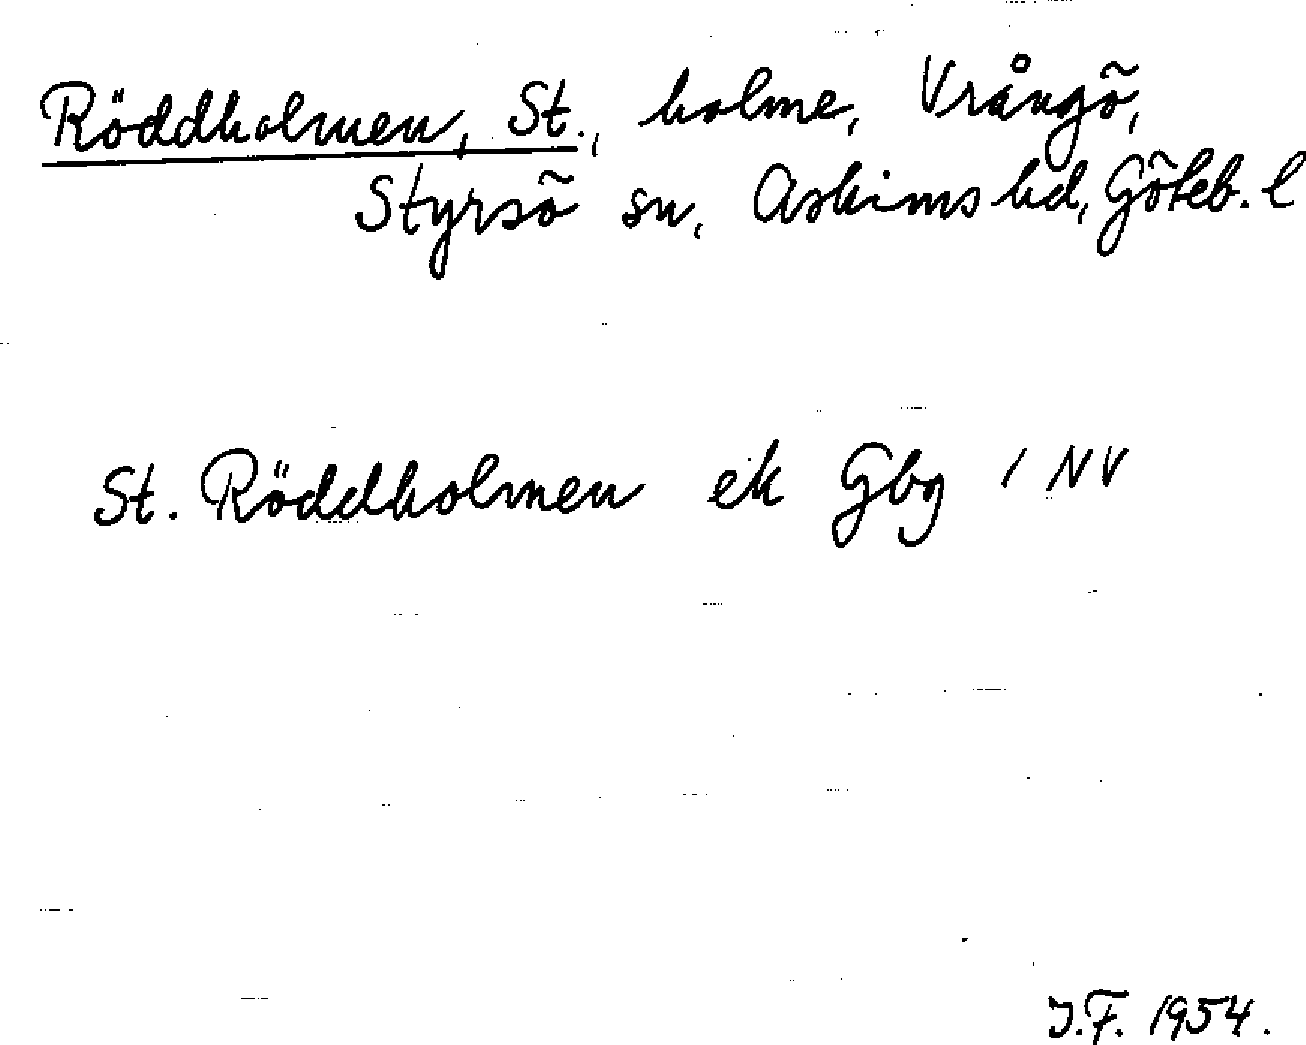 Röddholmen, St., holme, Vrångö,
Styrsö sn, Askims hd, Göteb. l
St. Röddholmen ek Gbg 1 NV
I.F. 1954.